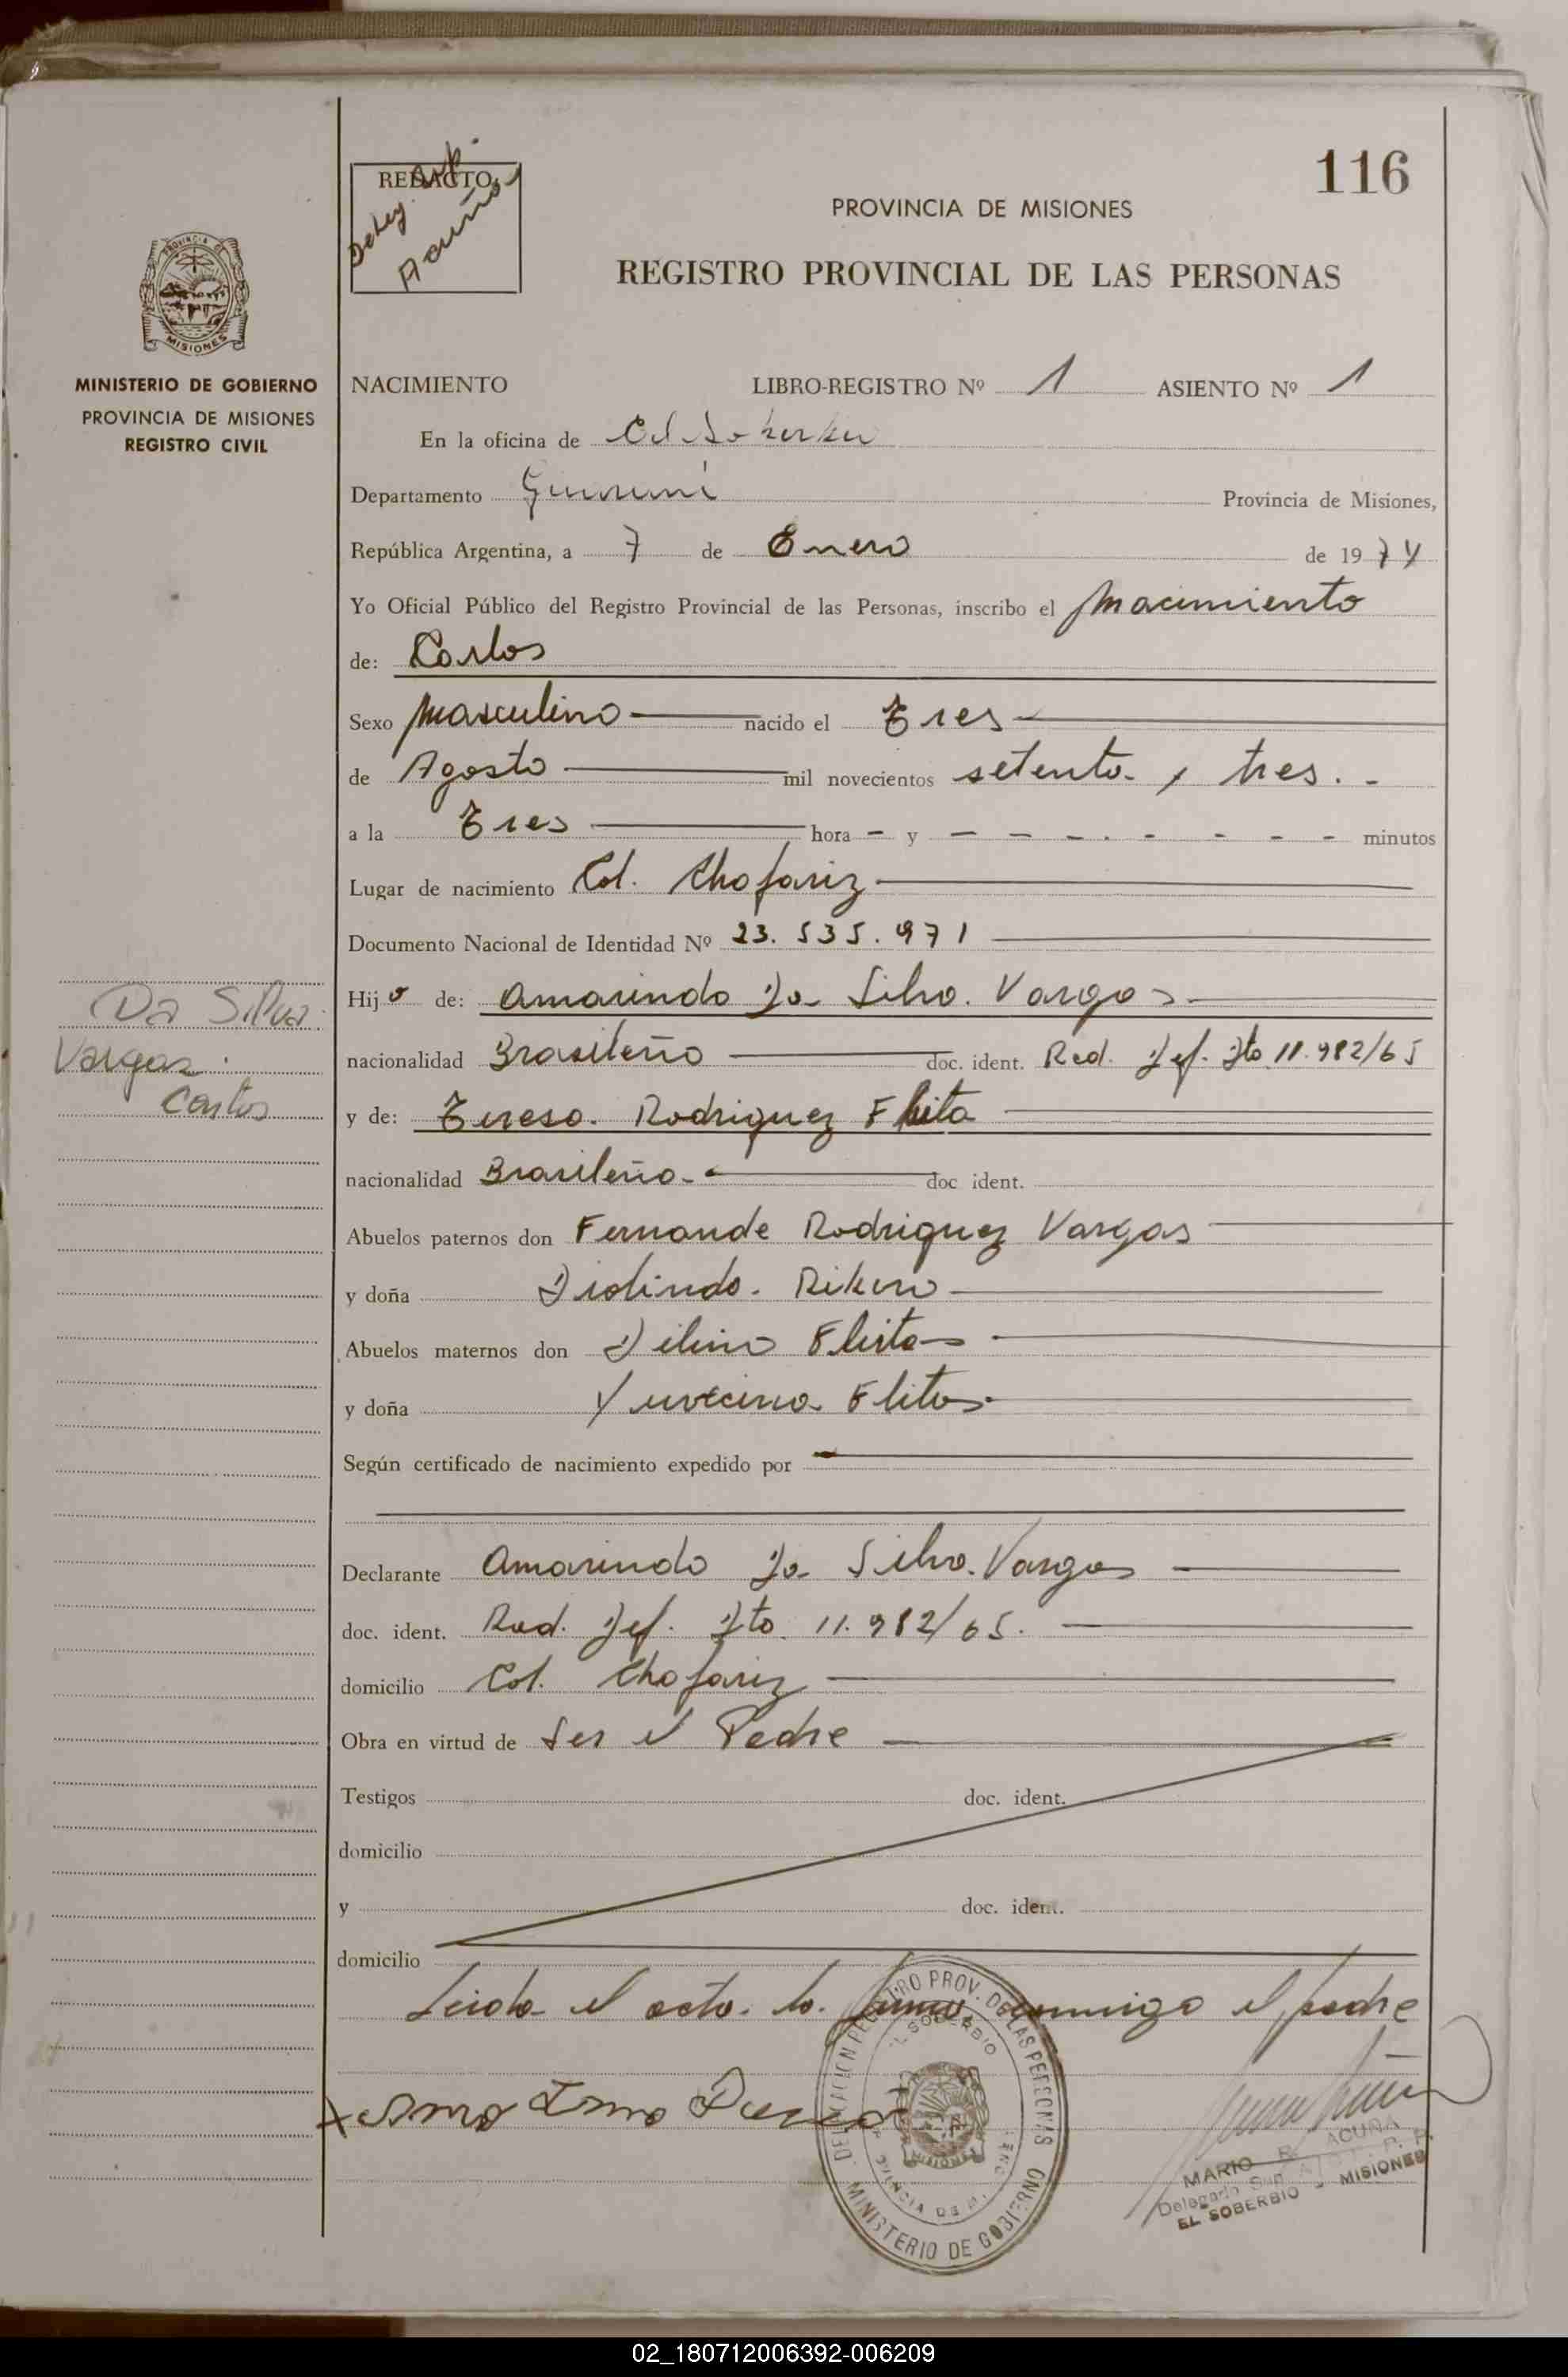 116
REDACTO
Deleg. Sup.
Acuña
PROVINCIA DE MISIONES
REGISTRO PROVINCIAL DE LAS PERSONAS
PROVINCIA DE
MISIONES
MINISTERIO DE GOBIERNO
PROVINCIA DE MISIONES
REGISTRO CIVIL
NACIMIENTO LIBRO-REGISTRO Nº 1 ASIENTO Nº 1
En la oficina de El Soberbio
Departamento Guaraní Provincia de Misiones,
República Argentina, a 7 de Enero de 1974
Yo Oficial Público del Registro Provincial de las Personas, inscribo el Nacimiento
de: Carlos
Sexo Masculino nacido el Tres
de Agosto mil novecientos setenta y tres.-
a la Tres hora - y - - - - - - - - minutos
Lugar de nacimiento Col. Chafariz
Documento Nacional de Identidad Nº 23.535.971
Hijo de: Amarindo Da Silva Vargas
nacionalidad Brasileña doc. ident. Rad. Def. Dto 11.982/65
y de: Teresa Rodriguez Fleita
nacionalidad Brasileña doc ident.
Abuelos paternos don Fernande Rodriguez Vargas
y doña Ribero
Abuelos maternos don
y doña
Según certificado de nacimiento expedido por
Declarante Amarindo Da Silva Vargas
doc. ident. Rad. Def. Dto. 11.982/65.
domicilio Col. Chafariz
Obra en virtud de Ser el Padre
Testigos doc. ident.
domicilio
y doc. ident.
domicilio
Leida el acta la firma conmigo el padre
Da Silva
Vargas
Carlos
EL SOBERBIO
MINISTERIO DE GOBIERNO
MISIONES
MARIO R. ACUÑA
Delegado Sup.
EL SOBERBIO - MISIONES
02_180712006392-006209